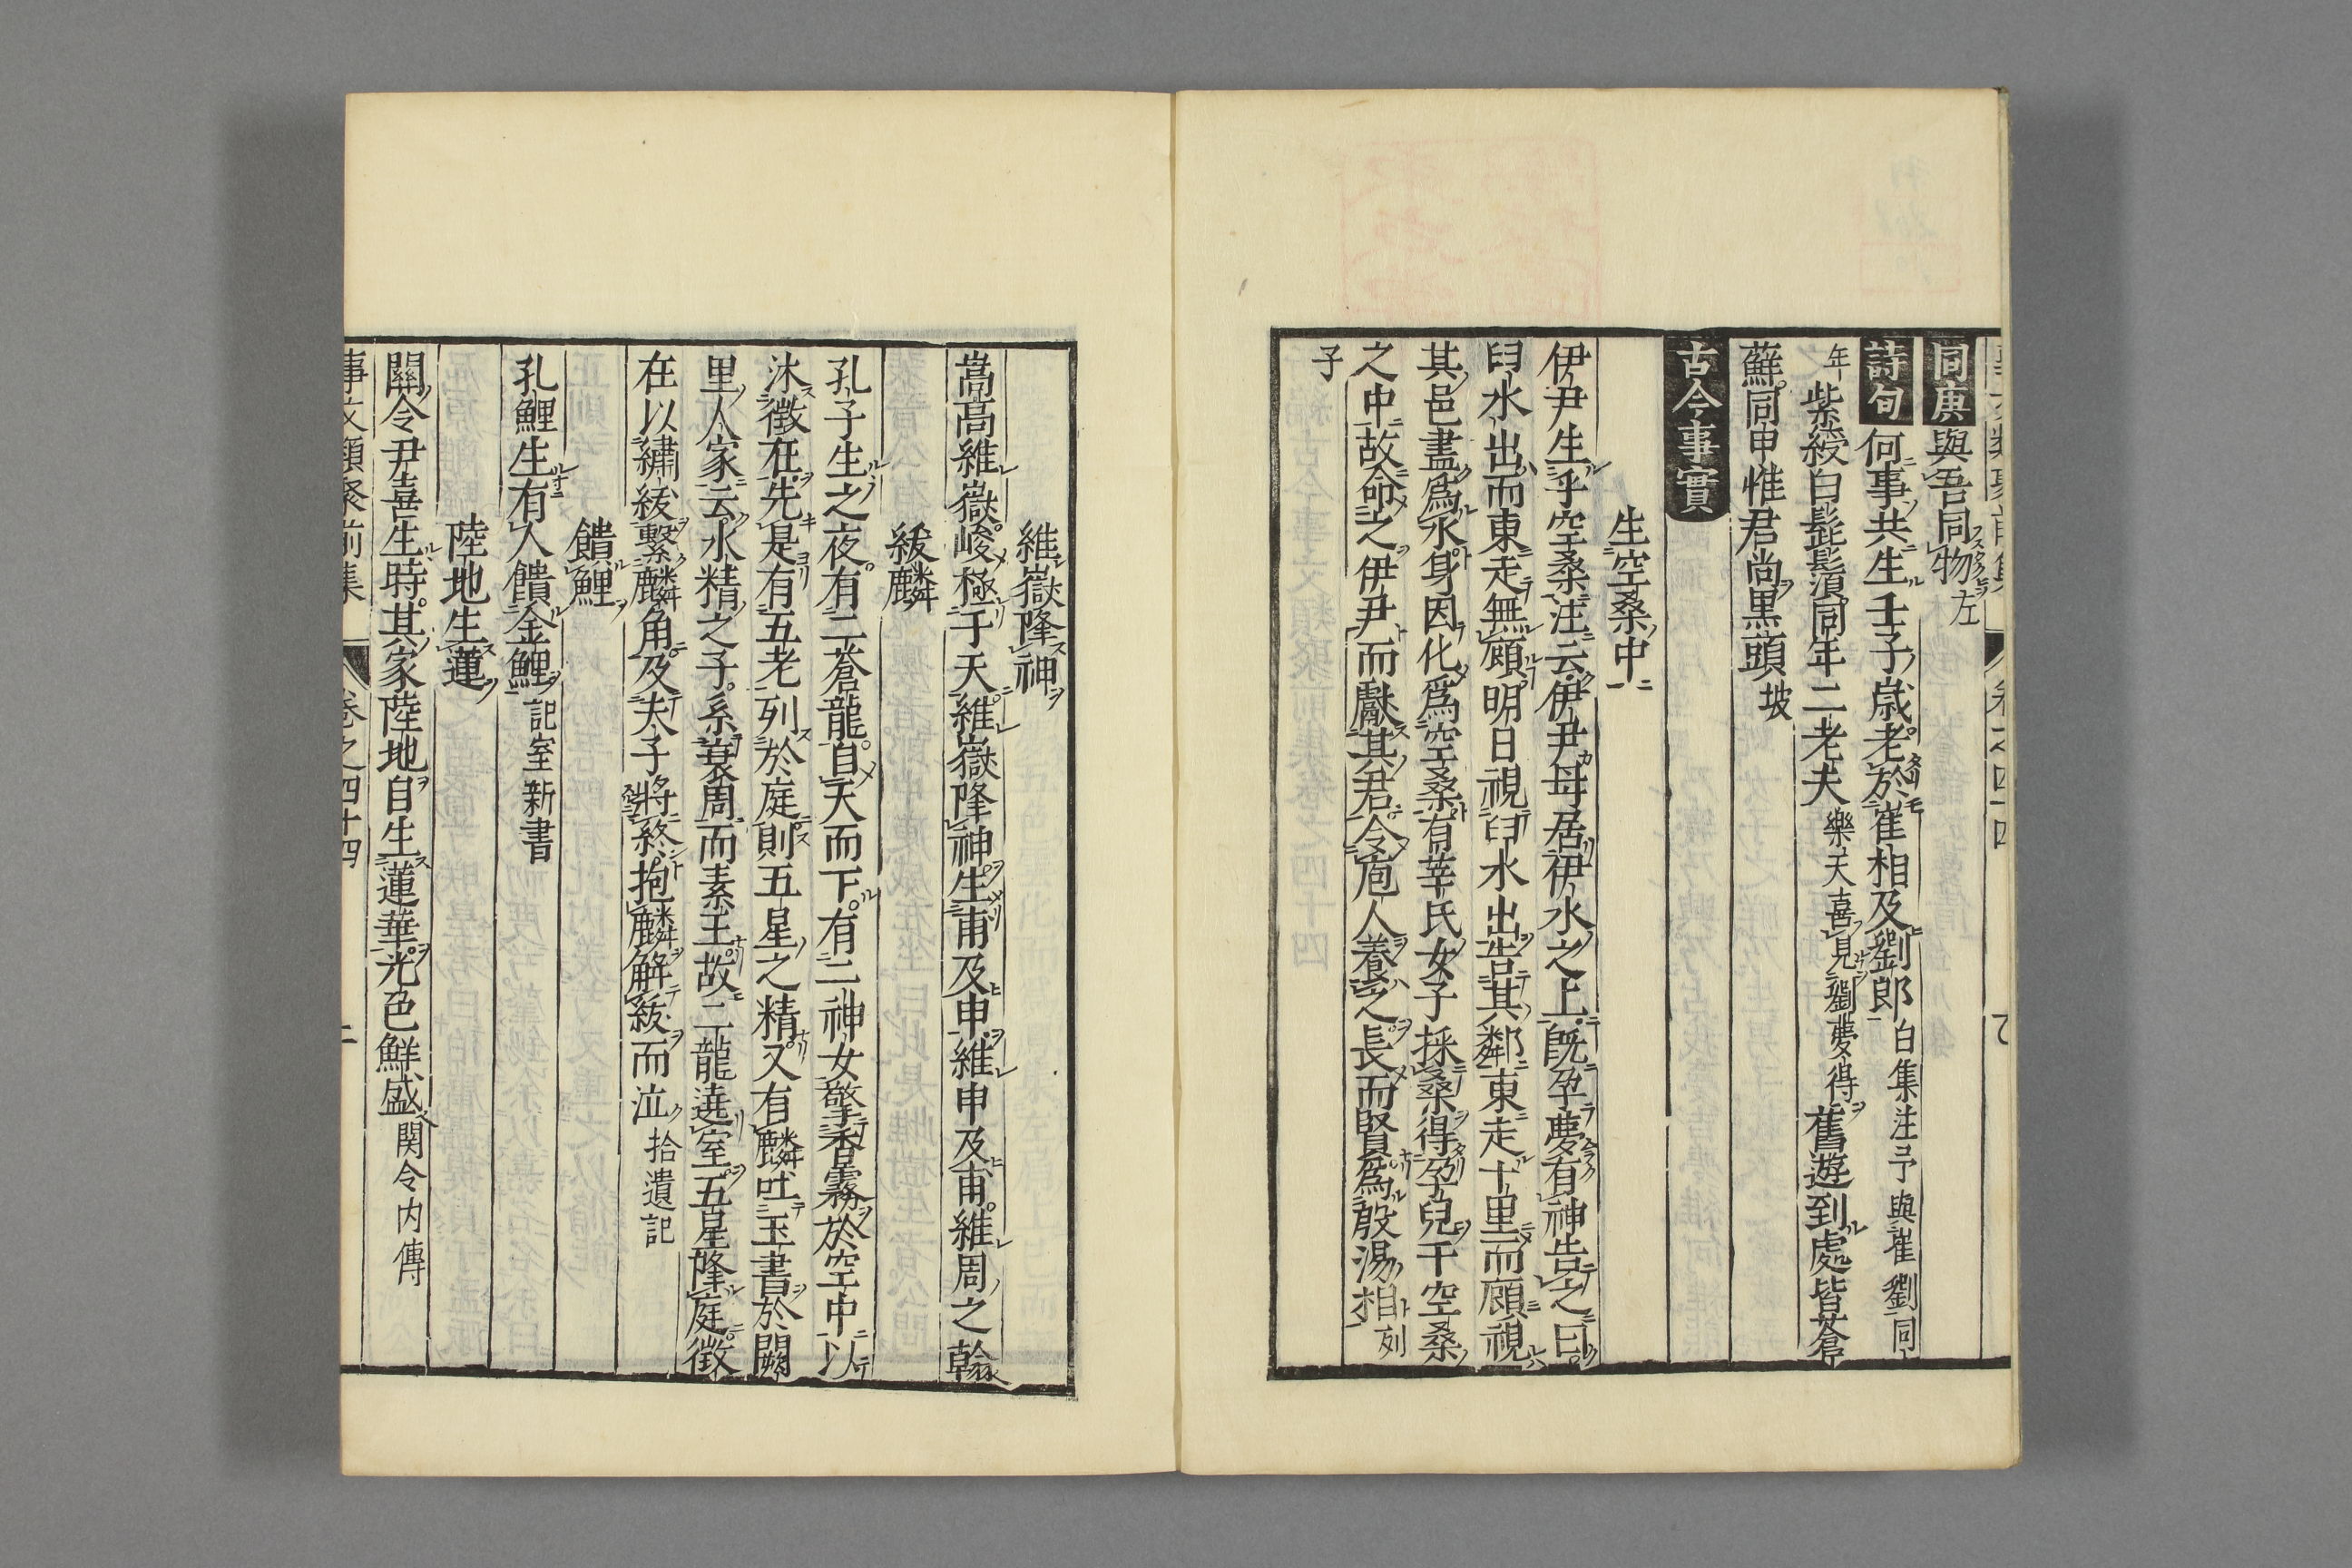 同庚與吾同物左
詩句何事共生壬子歳老於崔相及劉郎白集注予與崔劉同
年紫綬白髭鬚同年二老夫樂天喜見劉夢得舊遊到處皆蒼
蘇同甲惟君尚黒頭坡
古今事實
生空桑中
伊尹生乎空桑注云伊尹母居伊水之上既孕夢有神告之曰
臼水出而東走無顧明日視臼水出告其鄰東走十里而顧視
其邑盡爲水身因化爲空桑有莘氏女子採桑得孕兒于空桑
之中故命之伊尹而獻其君令庖人養之長而賢爲殷湯相列
子
維嶽降神
嵩高維嶽峻極于天維嶽降神生甫及申維申及甫維周之翰
紱麟
孔子生之夜有二蒼龍自天而下有二神女擎香霧於空中以
沐徵在先是有五老列於庭則五星之精又有麟吐玉書於闕
里人家云水精之子系衰周而素王故二龍遶室五星降庭徵
在以繡紱繫麟角及夫子將終抱麟解紱而泣拾遺記
饋鯉
孔鯉生有人饋金鯉記室新書
陸地生蓮
關令尹喜生時其家陸地自生蓮華光色鮮盛関令内傳
事文類聚前集 卷之四十四 二